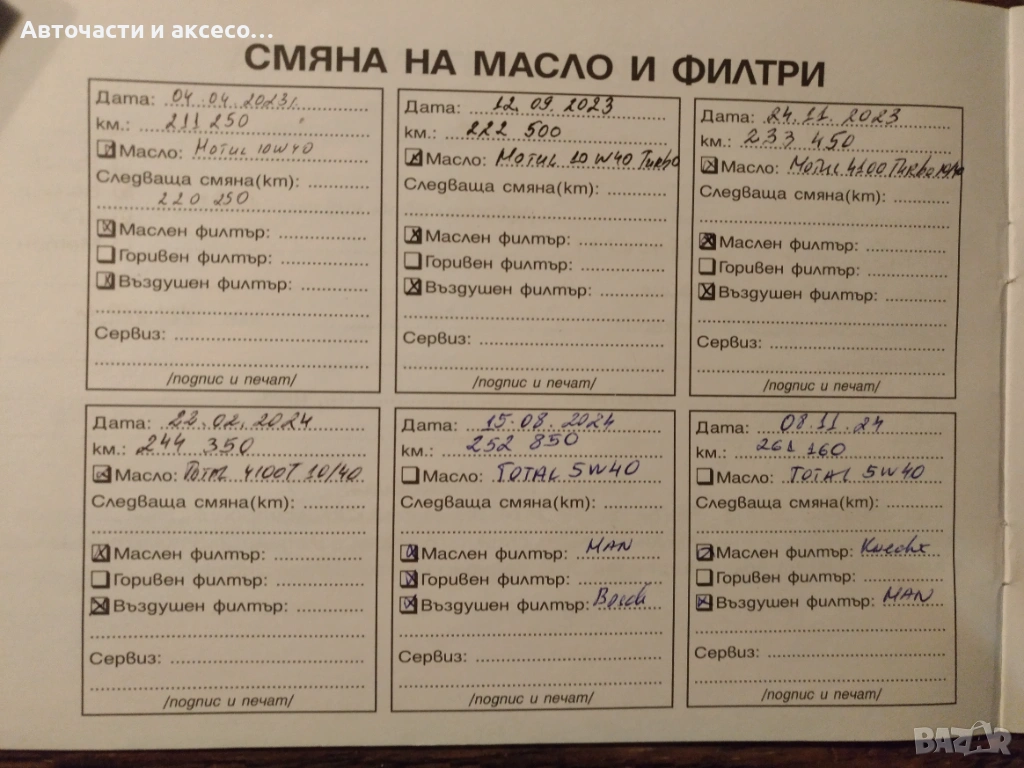 Авточасти и аксесо...
СМЯНА НА МАСЛО И ФИЛТРИ
Дата: 04.04.2023г.
км.: 211 250
Масло: Motul 10W40
Следваща смяна(km):
220 250
Маслен филтър:
Горивен филтър:
Въздушен филтър:
Сервиз:
/подпис и печат/
Дата: 12.09.2023
км.: 222 500
Масло: Motul 10W40 Turbo
Следваща смяна(km):
Маслен филтър:
Горивен филтър:
Въздушен филтър:
Сервиз:
/подпис и печат/
Дата: 24.11.2023
км.: 233 450
Масло: Motul 4100 Turbo
Следваща смяна(km):
Маслен филтър:
Горивен филтър:
Въздушен филтър:
Сервиз:
/подпис и печат/
Дата: 22.02.2024
км.: 244 350
Масло: Total 4100T 10/40
Следваща смяна(km):
Маслен филтър:
Горивен филтър:
Въздушен филтър:
Сервиз:
/подпис и печат/
Дата: 15.08.2024
км.: 252 850
Масло: TOTAL 5W40
Следваща смяна(km):
Маслен филтър: MAN
Горивен филтър:
Въздушен филтър: Bosch
Сервиз:
/подпис и печат/
Дата: 08.11.24
км.: 261 160
Масло: TOTAL 5W40
Следваща смяна(km):
Маслен филтър: Knecht
Горивен филтър:
Въздушен филтър: MAN
Сервиз:
/подпис и печат/
BAZAR